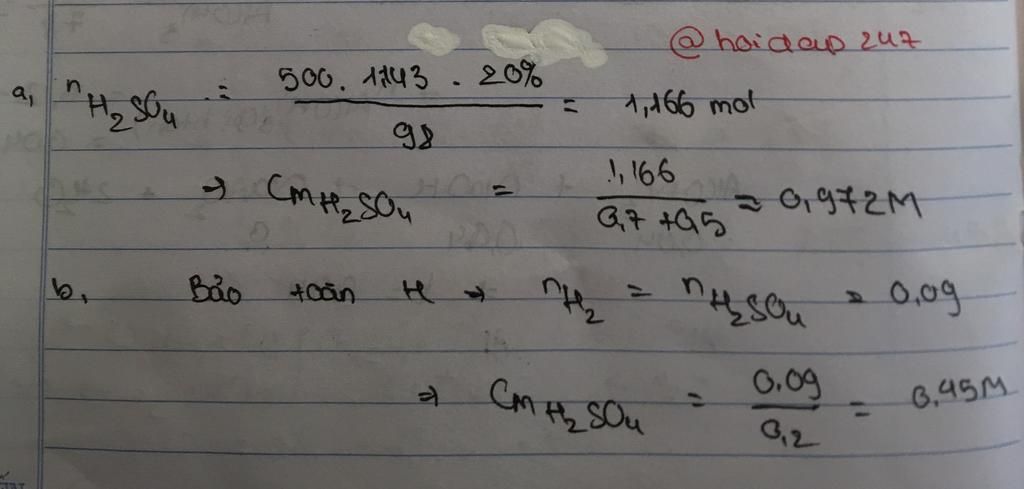 @hoidap247
a, nH₂SO₄ = 500. 1,143 . 20% / 98 = 1,166 mol
→ CmH₂SO₄ = 1,166 / 0,7 + 0,5 ≈ 0,972M
b, Bảo toàn H → nH₂ = nH₂SO₄ = 0,09
⇒ CmH₂SO₄ = 0,09 / 0,2 = 0,45M